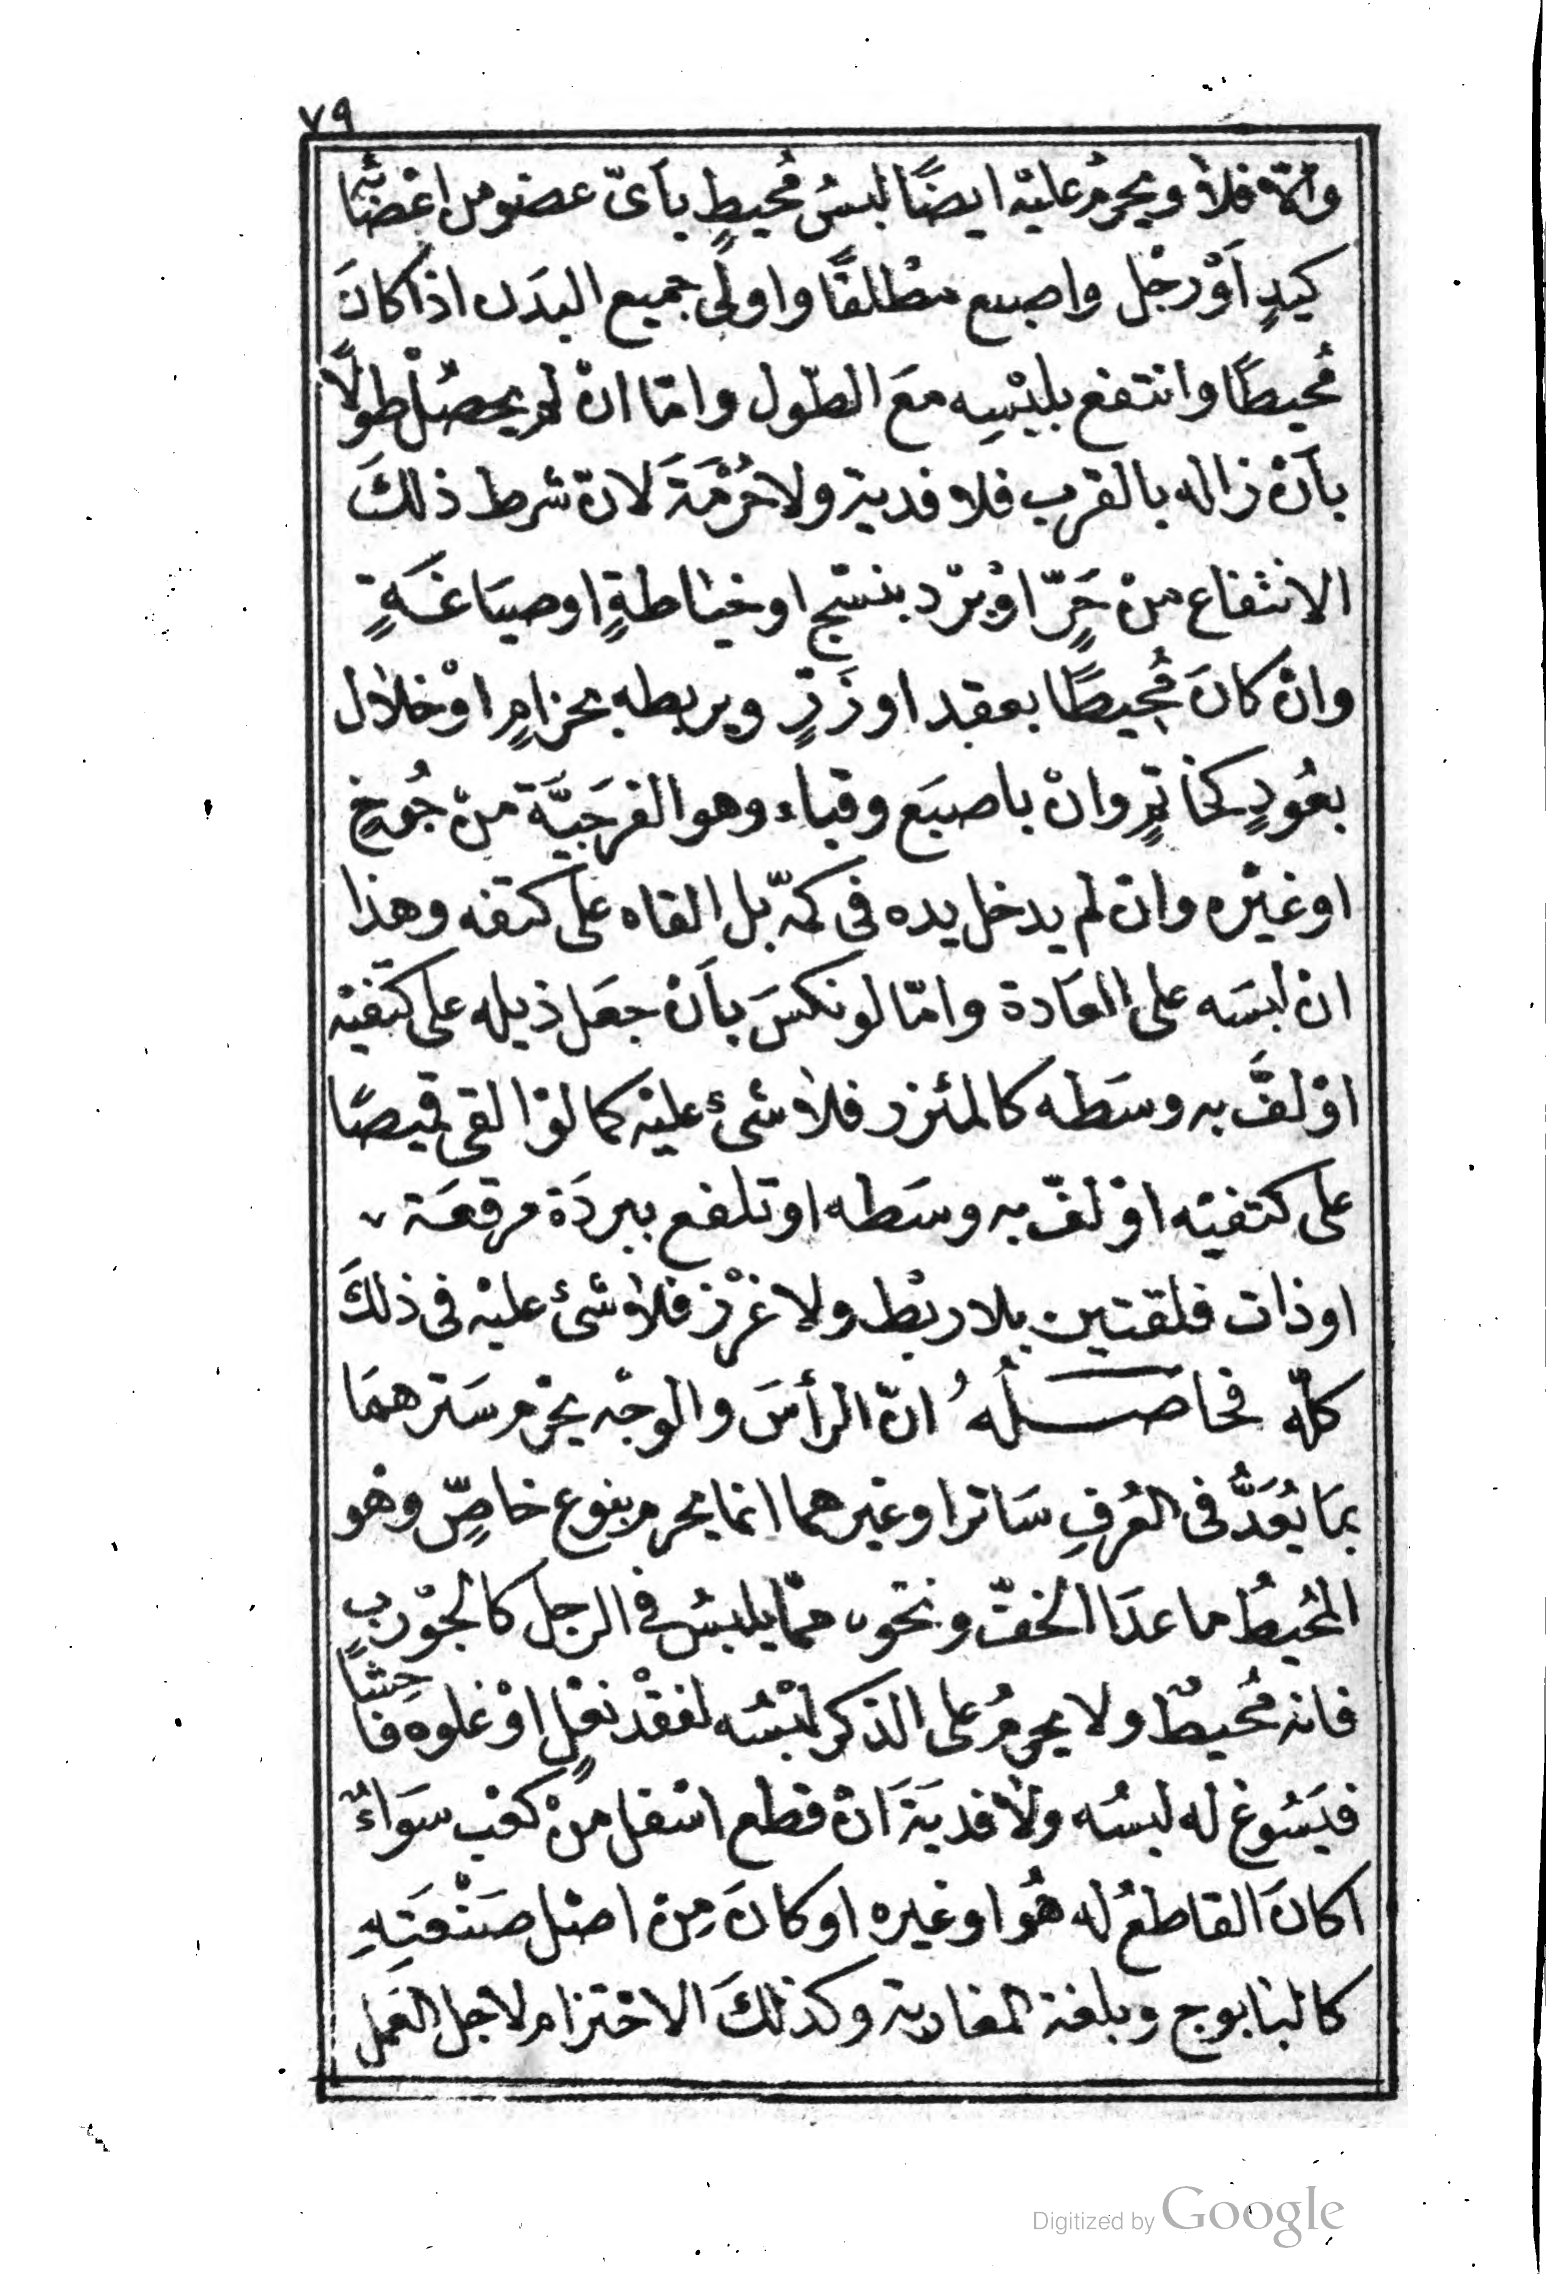 ٧٩
والاّ فلا ويحرمُ عليْه ايضًا لبسُ مُحيطٍ بأىّ عضو من اعْضائها
كيدٍ اَوْ رجْل واصبع مطْلقًا واولى جميع البدَن اذا كانَ
مُحيطًا وانتفع بلبْسِه معَ الطّول وامّا انْ لم يحصُلْ طولًا
بأنْ زاله بالقرب فلا فدية ولا حُرْمَةَ لانّ شرط ذلكَ
الانتفاع منْ حَرٍّ اوْ برْد بنسْجٍ او خياطةٍ او صياغَةٍ
وانْ كانَ مُحيطًا بعقد او زَرٍّ ويربطه بحزامٍ اوْ خلال
بعُودٍ كخاتمٍ وانْ باصبَع وقباء وهو الفرجَيَّة منْ جُوخٍ
او غيْره وانْ لم يدخل يده فى كمّه بل القاه على كتفه وهذا
انْ لبسَه على العَادة وامّا لو نكسَ بأنْ جعَل ذيله على كتفيْه
اوْ لفَّ به وسَطه كالمئزر فلا شىء عليْه كما لوْ القى قميصًا
على كتفيْه اوْ لفّ به وسَطه او تلفع ببردَة مرقعَة
او ذات فلقتين بلا ربْط ولا غرْز فلا شىء عليْه فى ذلكَ
كلّه فحاصلُهُ انّ الرأسَ والوجْه يحْرم سَترهمَا
بمَا يُعَدُّ فى العُرفِ سَاترا وغيرهما انما يحرم بنوع خاصٍّ وهو
المُحيطُ ما عدَا الخفّ ونحْوه ممّا يلبسُ فى الرجل كالجوْربِ
فانه مُحيطٌ ولا يحرمُ على الذكر لبْسُه لفقْد نعْلٍ اوْ غلوه فاحِشًا
فيَسُوغ له لبسُه ولا فديَةَ انْ قطع اسْفل منْ كعْب سوَاءٌ
اكانَ القاطعُ له هُو او غيره او كانَ مِنْ اصْل صَنْعَتِهِ
كالبابوج وبلغة المغاربة وكذلكَ الاحْتزام لاجل العَمل
Digitized by Google